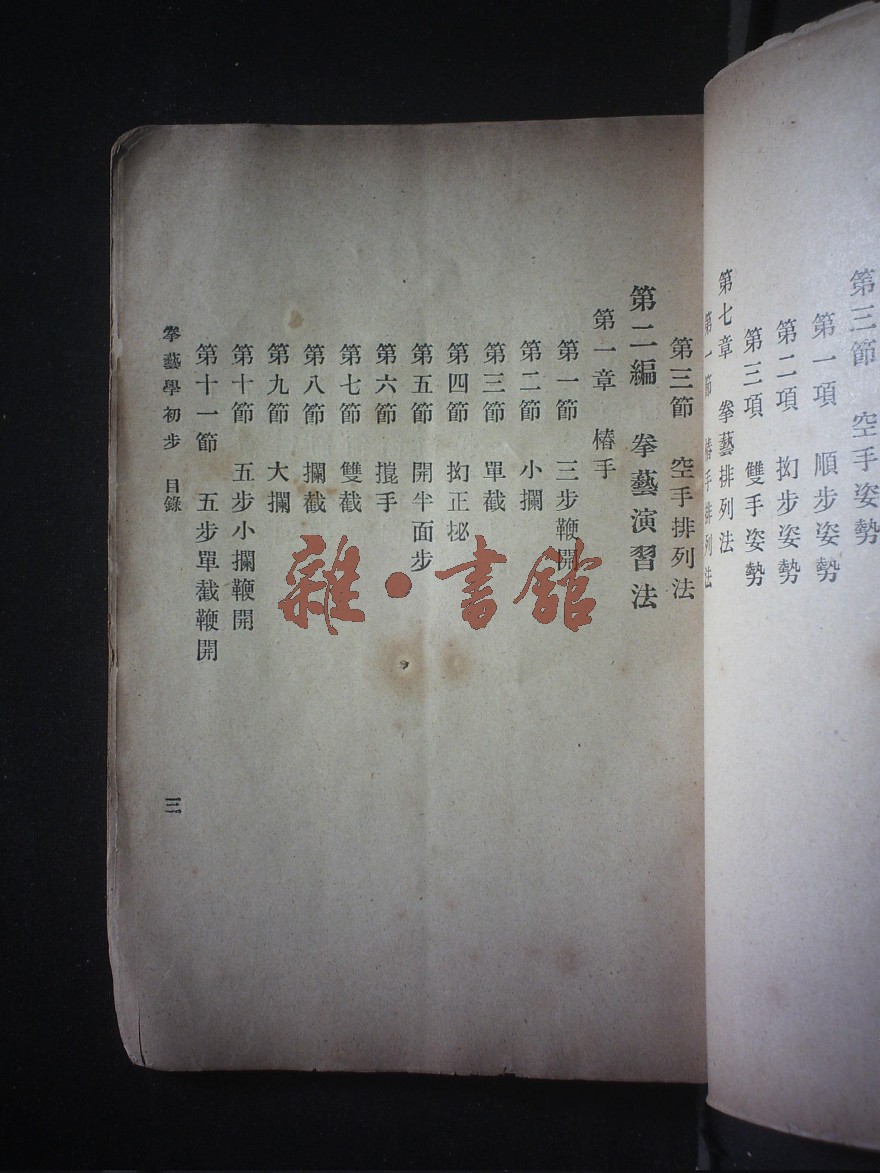 第三節　空手姿勢
第一項　順步姿勢
第二項　抝步姿勢
第三項　雙手姿勢
第七章　拳藝排列法
第一節　樁手排列法
第三節　空手排列法
第二編　拳藝演習法
第一章　樁手
第一節　三步鞭開
第二節　小攔
第三節　單截
第四節　抝正
第五節　開半面步
第六節　手
第七節　雙截
第八節　攔截
第九節　大攔
第十節　五步小攔鞭開
第十一節　五步單截鞭開
拳藝學初步　目錄
三
雜·書館